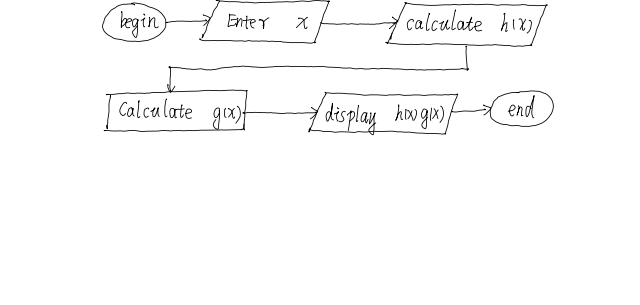 begin Enter x calculate h(x)
Calculate g(x) display h(x) g(x) end